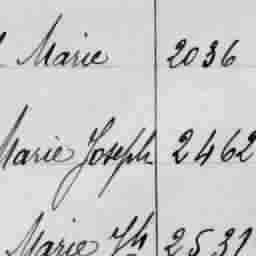 Marie 2036
Marie Joseph 2462
Marie Jh 2531